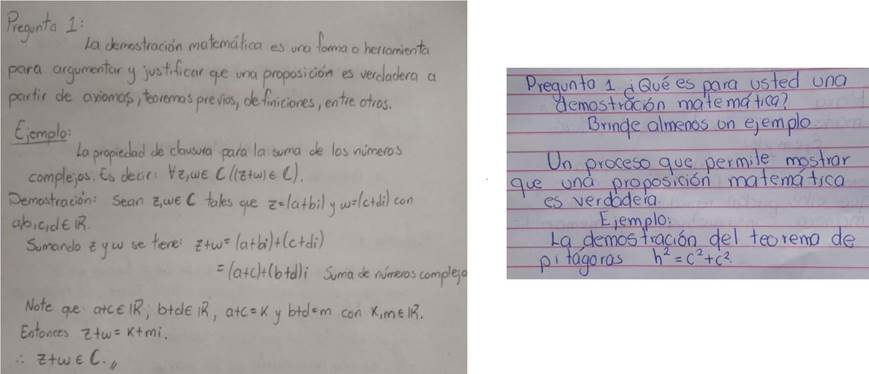 Pregunta 1:
La demostración matemática es una forma o herramienta
para argumentar y justificar que una proposición es verdadera a
partir de axiomas, teoremas previos, definiciones, entre otros.
Ejemplo:
La propiedad de clausura para la suma de los números
complejos. Es decir: ∀z,w∈ C ((z+w) ∈ C).
Demostración: Sean z,w∈ C tales que z=(a+bi) y w=(c+di) con
a,b,c,d∈ IR.
Sumando z y w se tiene: z+w = (a+bi)+(c+di)
= (a+c)+(b+d)i Suma de números complejo
Note que a+c∈ IR; b+d∈ IR, a+c=K y b+d=m con K,m∈ IR.
Entonces z+w= K+mi.
∴ z+w ∈ C.,,
Pregunta 1 ¿Qué es para usted una
demostración matemática?
Brinde almenos un ejemplo
Un proceso que permite mostrar
que una proposición matemática
es verdadera.
Ejemplo:
La demostración del teorema de
pitágoras h²=c²+c²